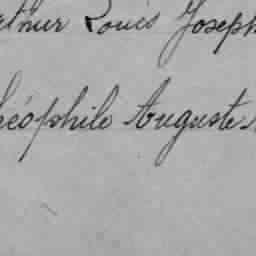 Louis Joseph
Théophile Auguste